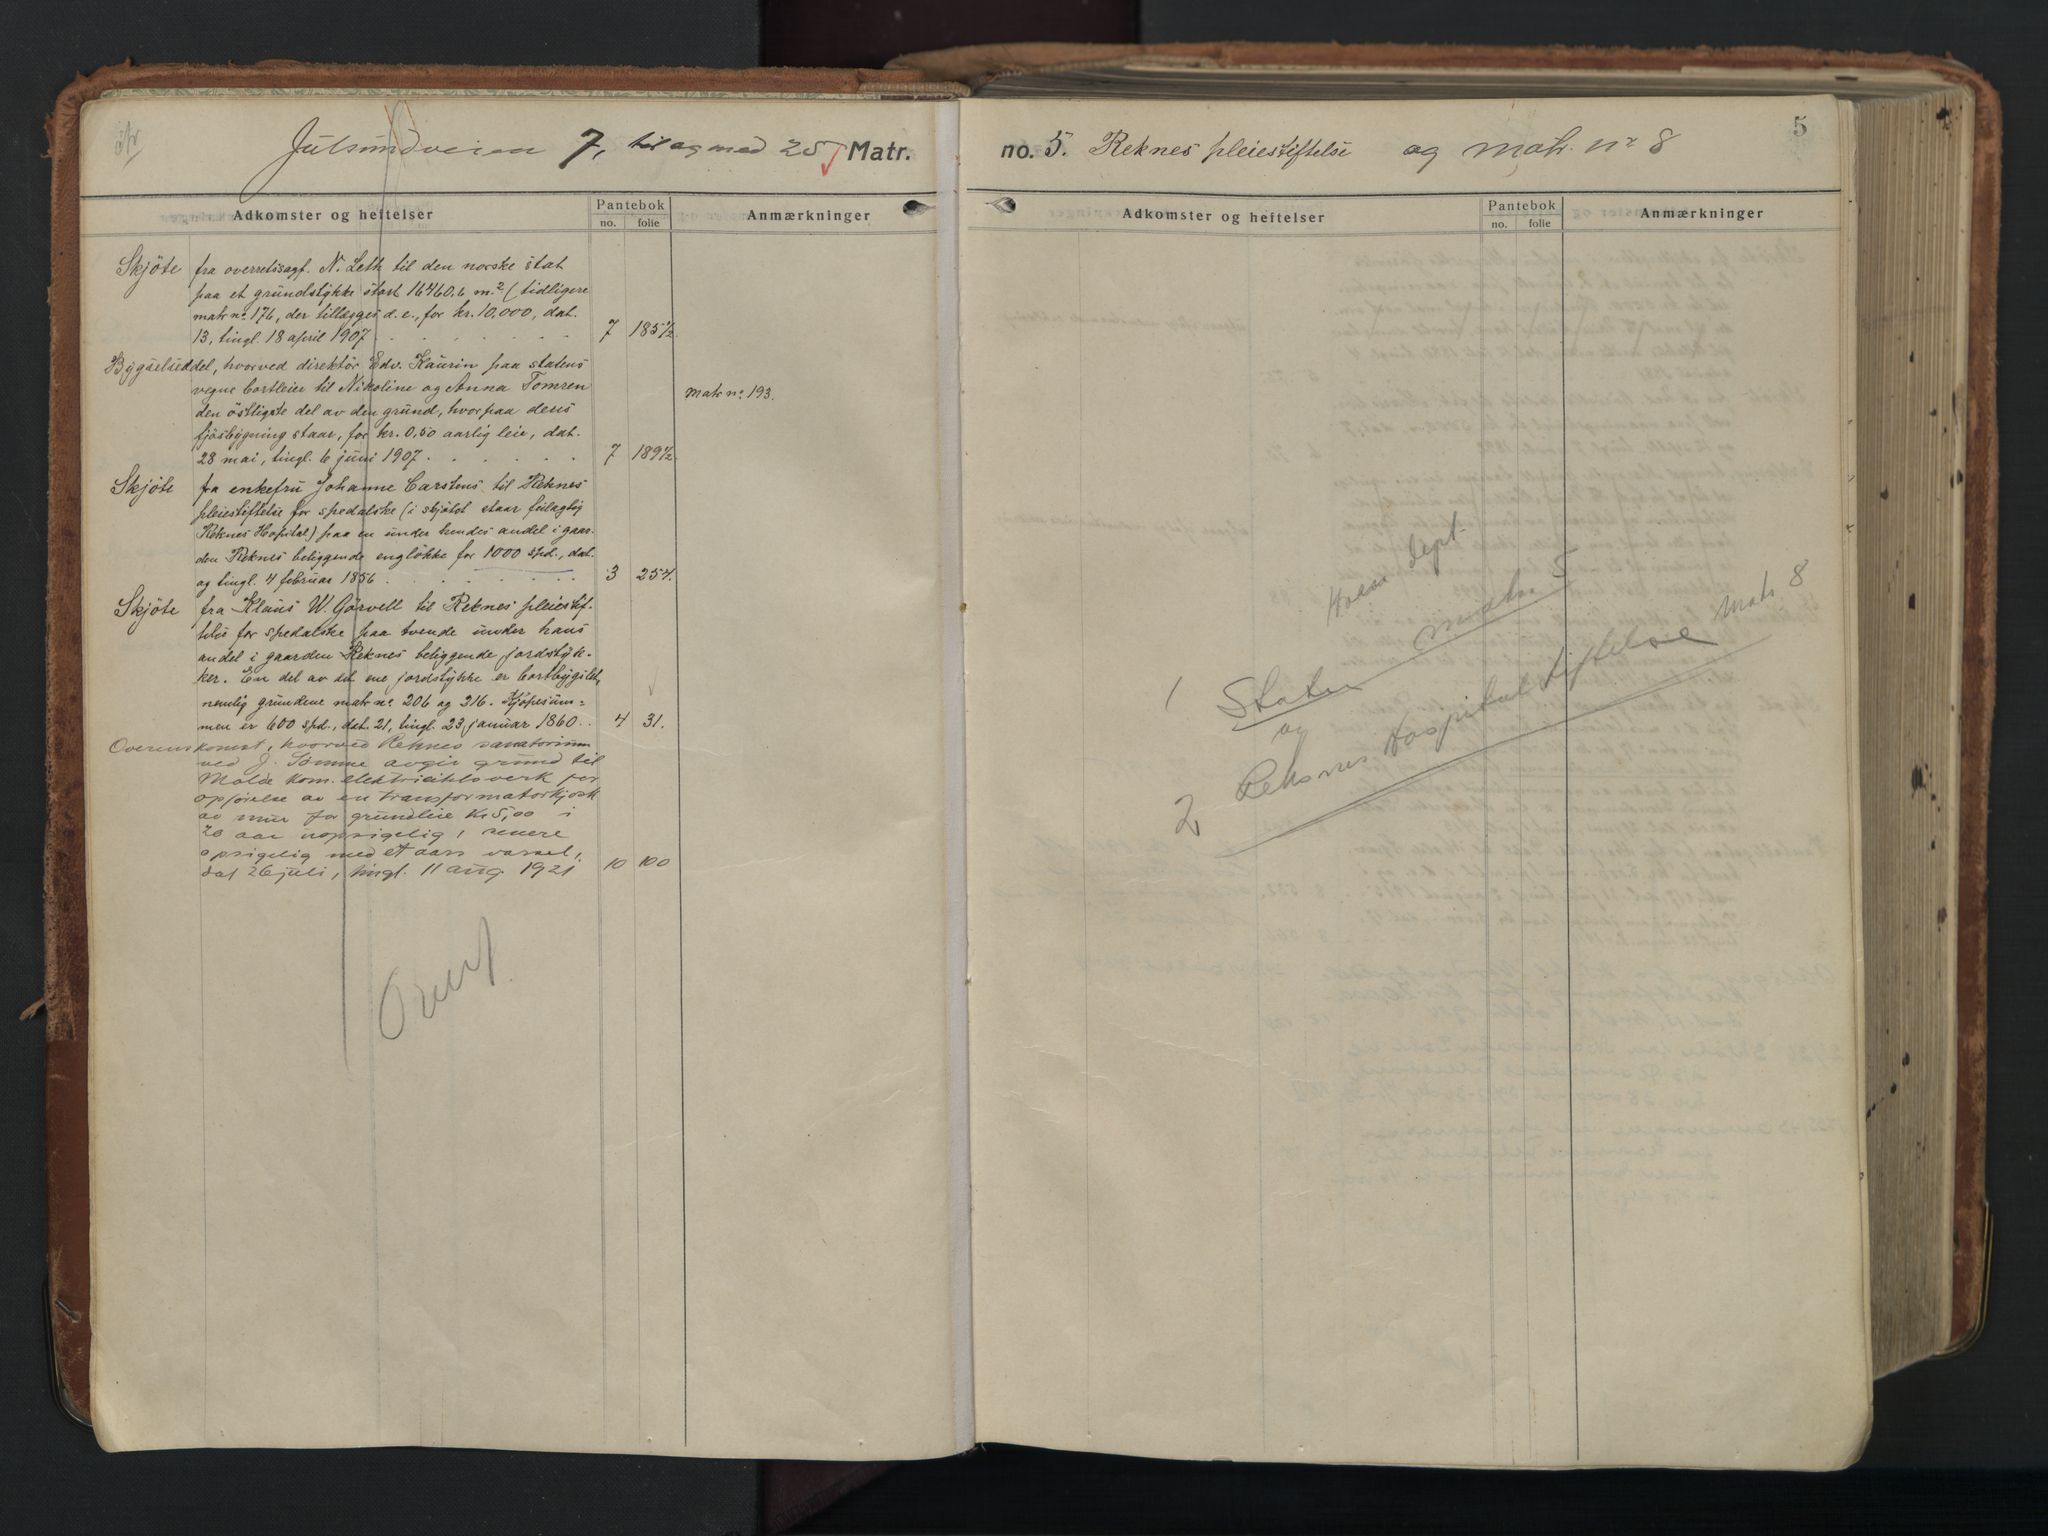 Julsundveien 7, til og med 25 Matr.
Adkomster og heftelser
Pantebok
no. folie
Anmærkninger
Skjöte fra overretssagf. N. Leth til den norske stat
paa et grundstykke stort 16460,6 m.² (tidligere
matr no. 176, der tillægges d. e., for kr. 10,000, dat.
13, tingl. 18 april 1907. 7 185½
Bygselseddel, hvorved direktör Edv. Kaurin paa statens
vegne bortleier til Nikoline og Anna Tomren
den östligste del av den grund, hvorpaa deres
fjösbygning staar, for kr. 0,50 aarlig leie, dat.
28 mai, tingl. 6 juni 1907. 7 189½
Matr no. 193.
Skjöte fra enkefru Johanne Carstens til Reknes
pleiestiftelse for spedalske (i skjötet staar feilagtig
Reknes Hospital) paa en under hendes andel i gaar-
den Reknes beliggende englökke for 1000 spd., dat.
og tingl. 4 februar 1856. 3 254.
Skjöte fra Klaus W. Görvell til Reknes pleiestif-
telse for spedalske paa tvende under hans
andel i gaarden Reknes beliggende jordstyk-
ker. En del av det ene jordstykke er bortbygslet,
nemlig grundene matr no. 206 og 316. Kjöpesum-
men er 600 spd., dat. 21, tingl. 23 januar 1860. 4 31.
Overenskomst, hvorved Reknes sanatorium
ved J. Tomme avgir grund til
Molde kom. elektricitetsverk for
opförelse av en transformatorkjosk
av mur for grundleie Kr 5,00 i
20 aar uopsigelig, senere
opsigelig med et aars varsel,
dat 26 juli, tingl. 11 aug 1921 10 100
Overf.
no. 5. Reknes pleiestiftelse og matr. nr 8
5
Adkomster og heftelser
Pantebok
no. folie
Anmærkninger
1 Staten 5
og
2 Reknes Hospital Stiftelse Matr 8